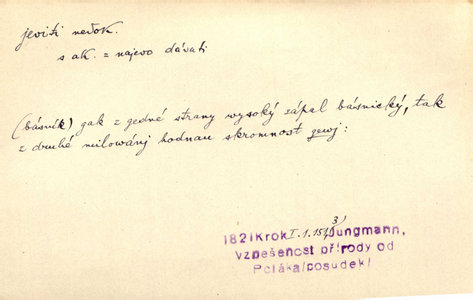 jeviti nedok.
s ak. = najevo dávati
(básník) gak z gedné strany wysoký zápal básnický, tak
z druhé milowánj hodnau skromnost gewj:
1821Krok I.1.151/3/Jungmann,
Vznešenost přírody od
Poláka/posudek/